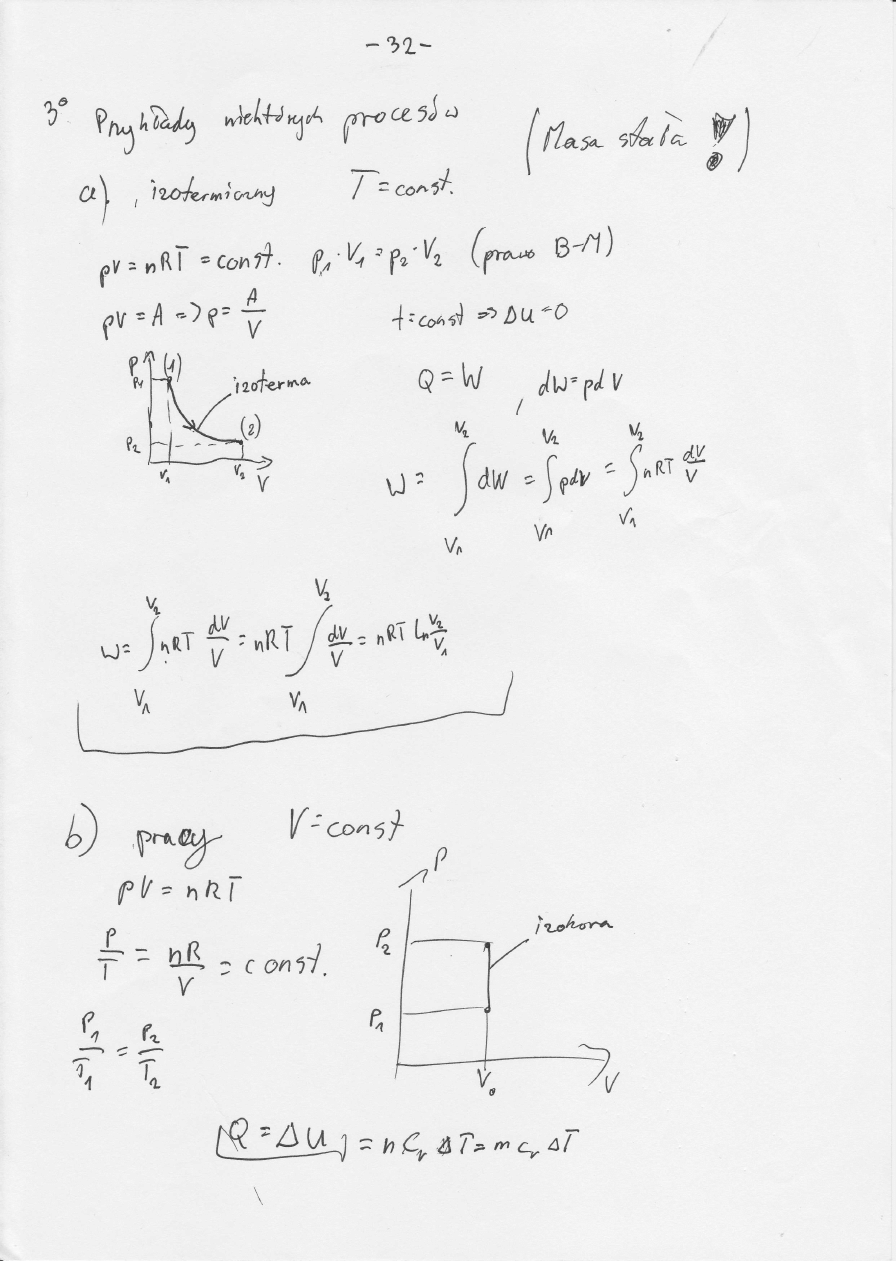 - 32 -
3° Przykłady niektórych procesów (Masa stała !)
a). , izotermiczny T = const.
pV = nRT = const. p₁·V₁ = p₂·V₂ (prawo B-M)
pV = A => p = A/V t = const => ΔU = 0
P (1)
P₁
izoterma
(2)
P₂
V₁ V₂ V
Q = W , dW = pdV
W = ∫_{V₁}^{V₂} dW = ∫_{V₁}^{V₂} pdV = ∫_{V₁}^{V₂} nRT dV/V
W = ∫_{V₁}^{V₂} nRT dV/V = nRT ∫_{V₁}^{V₂} dV/V = nRT ln V₂/V₁
b) pracy V = const
pV = nRT
P/T = nR/V = const.
P₁/T₁ = P₂/T₂
P
izohora
P₂
P₁
V₀ V
Q = ΔU = n Cᵥ ΔT = m cᵥ ΔT